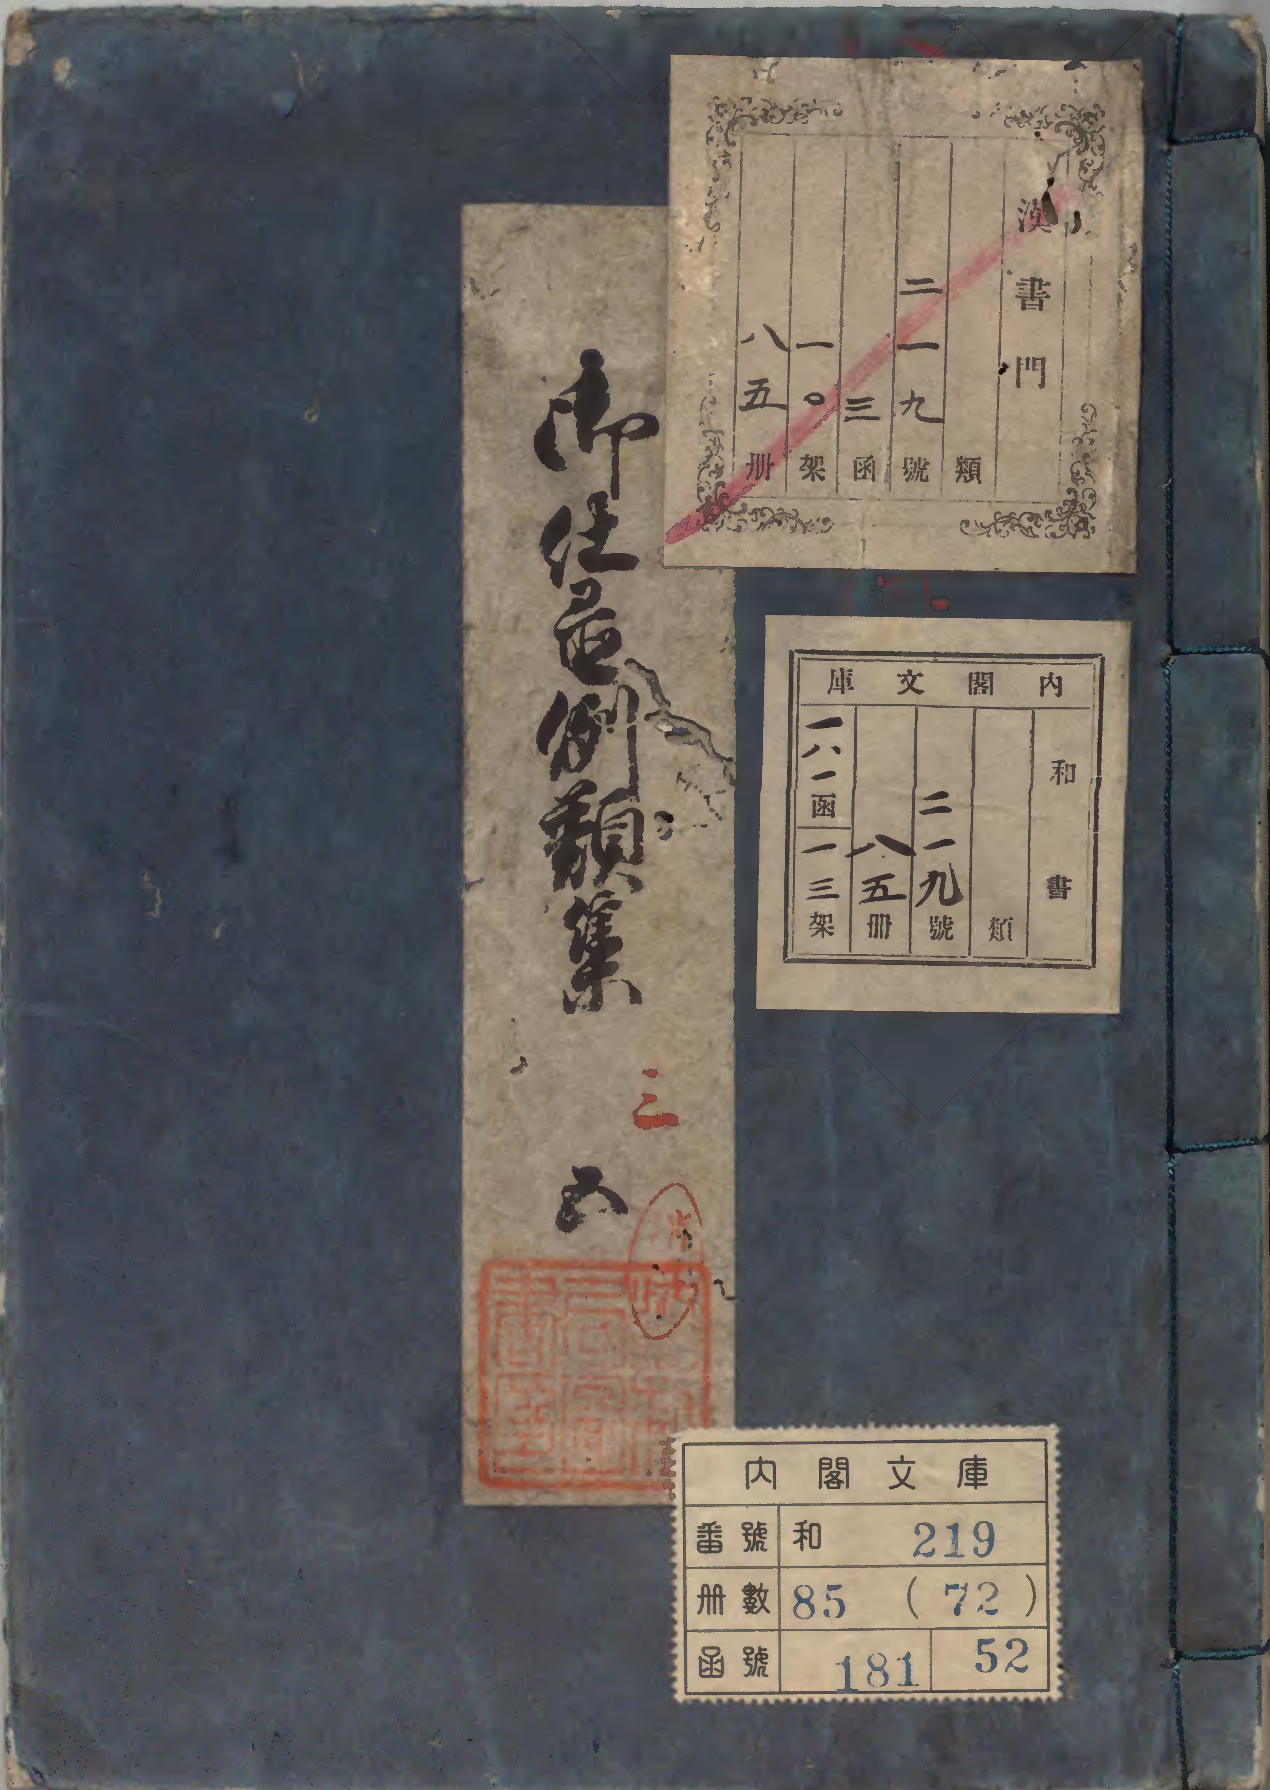 漢書門
類
二一九號
三函
一〇架
八五册
御仕置例類集
三
五
内閣文庫
和書
類
二一九號
八五册
一八一函
一三架
内閣文庫
番號 和 219
册數 85 (72)
函號 181 52